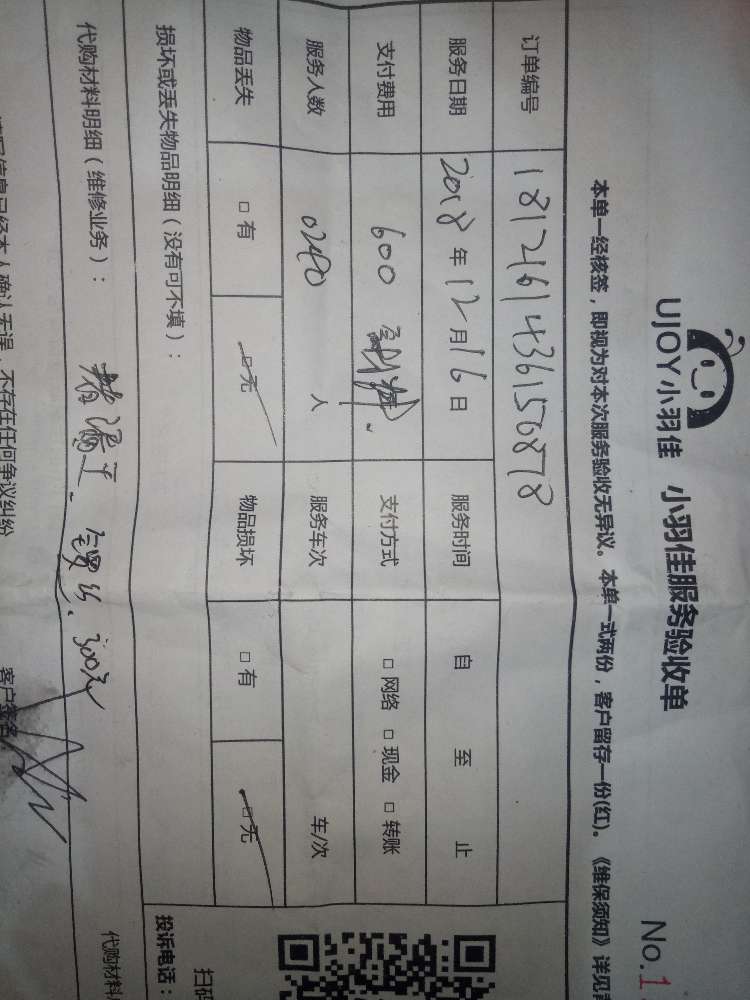 UJOY小羽佳 小羽佳服务验收单
No.1
本单一经核签，即视为对本次服务验收无异议。本单一式两份，客户留存一份(红)。《维保须知》详见
订单编号 1812161436156878
服务日期 2018年12月16日 服务时间 自 至 止
支付费用 600 支付方式 □网络 □现金 □转账
服务人数 人 服务车次 车/次
物品丢失 □有 □无 物品损坏 □有 □无
损坏或丢失物品明细（没有可不填）：
投诉电话：
代购材料明细（维修业务）： 300元
代购材料
扫码
信息已经本人确认无误，不存在任何争议纠纷
客户签名